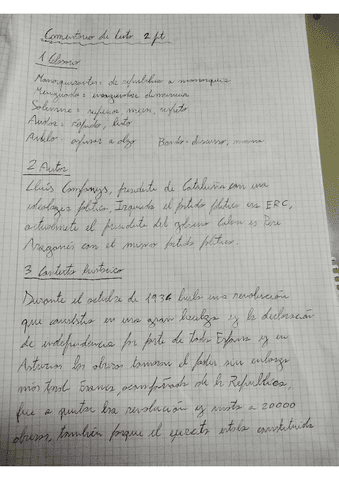 Comentario de texto 2 pt
1 Glosario
Monarquizantes: de republica a monarquia
Menguada = disminuia
Solemne =
Audaz = rápido, listo
Anhelo = aspirar a algo Bando = discurso, norma
2 Autor
Lluís Companys, presidente de Cataluña con una
ideología política, Izquierda el partido político era ERC,
actualmente el presidente del gobierno Catalan es Pere
Aragonés con el mismo partido político.
3 Contexto historico
Durante el octubre de 1934 hubo una revolución
que consistia en una gran huelga y la declaración
de independencia por parte de toda España y en
Asturias los obreros tomaron el poder sin embargo
mas tard Franco, acompañado de la Republica,
fue a quitar la revolución y mato a 20000
obreros, también porque el ejercito estaba constituida